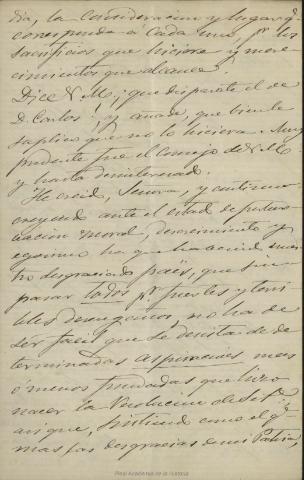 dia, la consideracion y lugar q.e
corresponde á cada uno, p.r los
sacrificios que hiciere y mere
cimientos que alcance.
Dice V. M., ¡que disparate el de
D. Carlos! y añade, que
suplico que no lo hiciera. Muy
prudente fue el consejo de V. M.
y harto desinteresado.
He creido, Señora, y continuo
creyendo ante el estado de pertur-
bacion moral, descreimiento y
egoismo ha que ha venido nues-
tro desgraciado pais, que sin
pasar todos p.r fuertes y terri
bles desengaños, no ha de
ser facil que se desista de de
terminadas aspiraciones mas
ó menos fundadas que hizo
nacer la Revolucion de S.e
asi que, sintiendo como el q.e
mas las desgracias de mi Patria,
Real Academia de la Historia